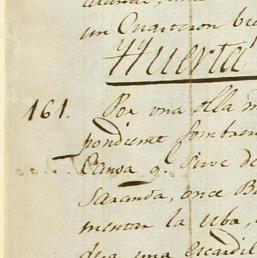 un Quarteron bre
Huerta
161. Por una olla m
pondiente sombre
Cansa q. sirve de
Saranda, once B
mentar la Uba,
dra una Escardil